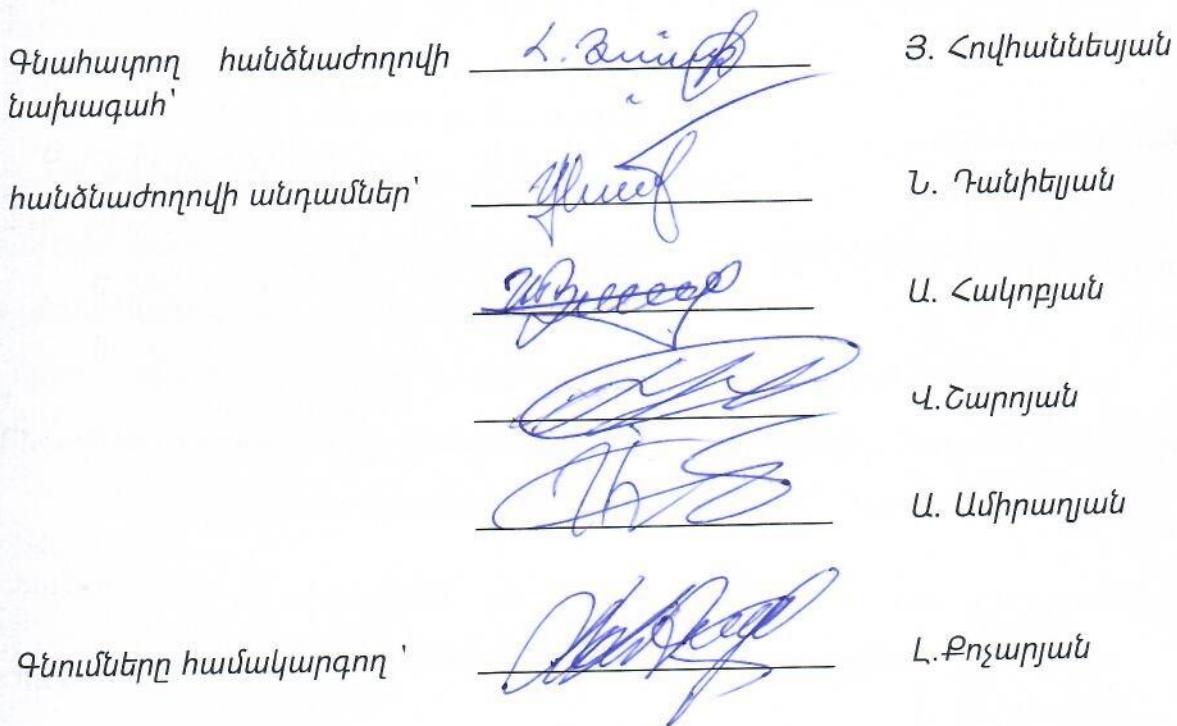 Գնահատող հանձնաժողովի Յ. Հովհաննեսյան
նախագահ՝
հանձնաժողովի անդամներ՝ Ն. Դանիելյան
Ա. Հակոբյան
Վ.Շարոյան
Ա. Ամիրաղյան
Գնումները համակարգող ՝ Լ.Քոչարյան